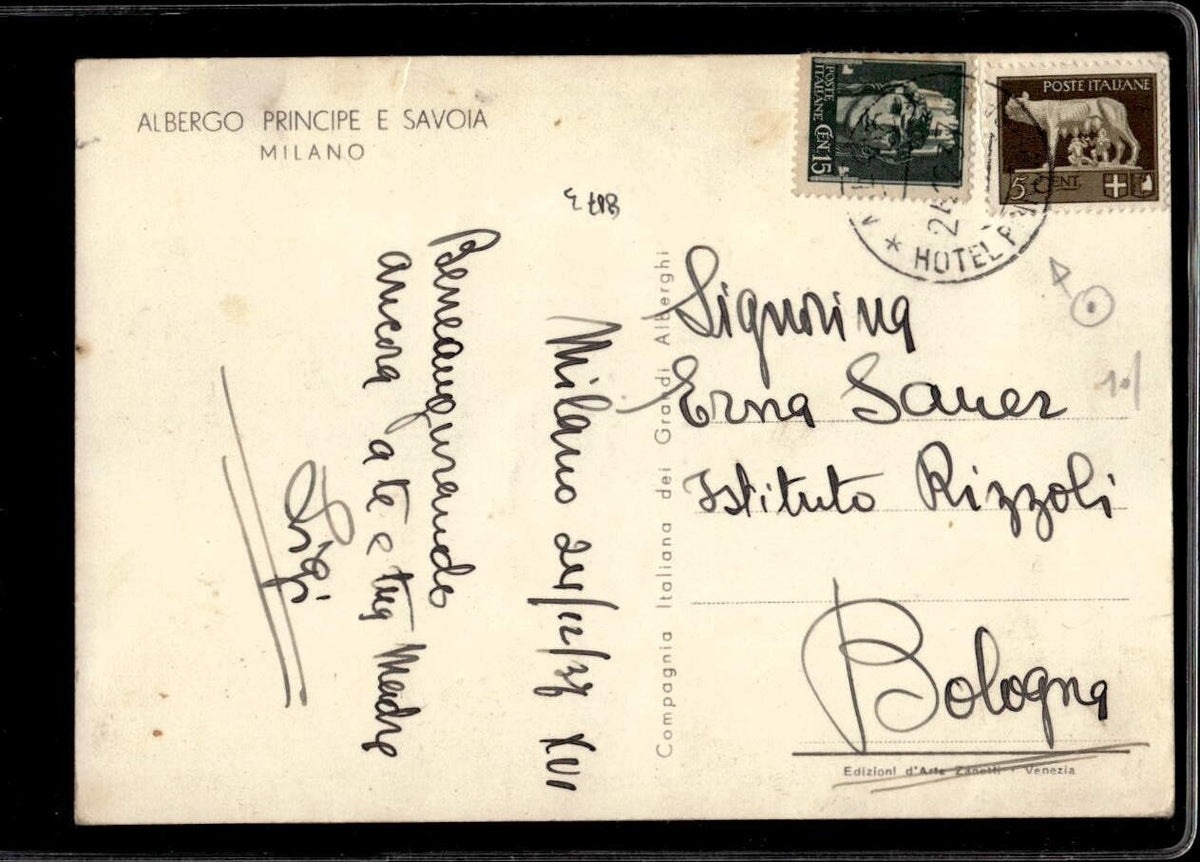 ALBERGO PRINCIPE E SAVOIA
MILANO
POSTE
ITALIANE
CEN. 15
POSTE ITALIANE
5 CENT.
HOTEL P
Milano 24/12/37 XVI
Beneaugurando
ancora a te e tua Madre
Luigi
Compagnia Italiana dei Grandi Alberghi
Signorina
Erna Sauer
Istituto Rizzoli
Bologna
Edizioni d'Arte Zanetti - Venezia